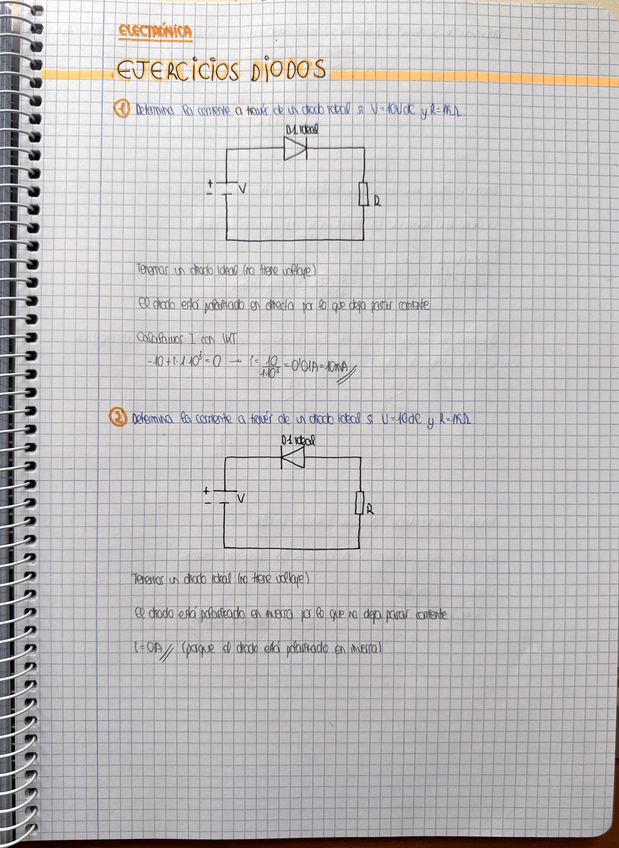 ELECTRÓNICA
EJERCICIOS DIODOS
1 Determina la corriente a través de un diodo ideal si V=10Vdc y R=1KΩ
D1 ideal
+
- V
R
Tenemos un diodo ideal (no tiene voltaje)
El diodo está polarizado en directa por lo que deja pasar corriente
Calculamos I con LKT
-10+i·1·10³=0 → i= 10/1·10³ =0'01A=10mA
2 Determina la corriente a través de un diodo ideal si V=10dc y R=1KΩ
D1 ideal
+
- V
R
Tenemos un diodo ideal (no tiene voltaje)
El diodo está polarizado en inversa por lo que no deja pasar corriente
i=0A (porque el diodo está polarizado en inversa)